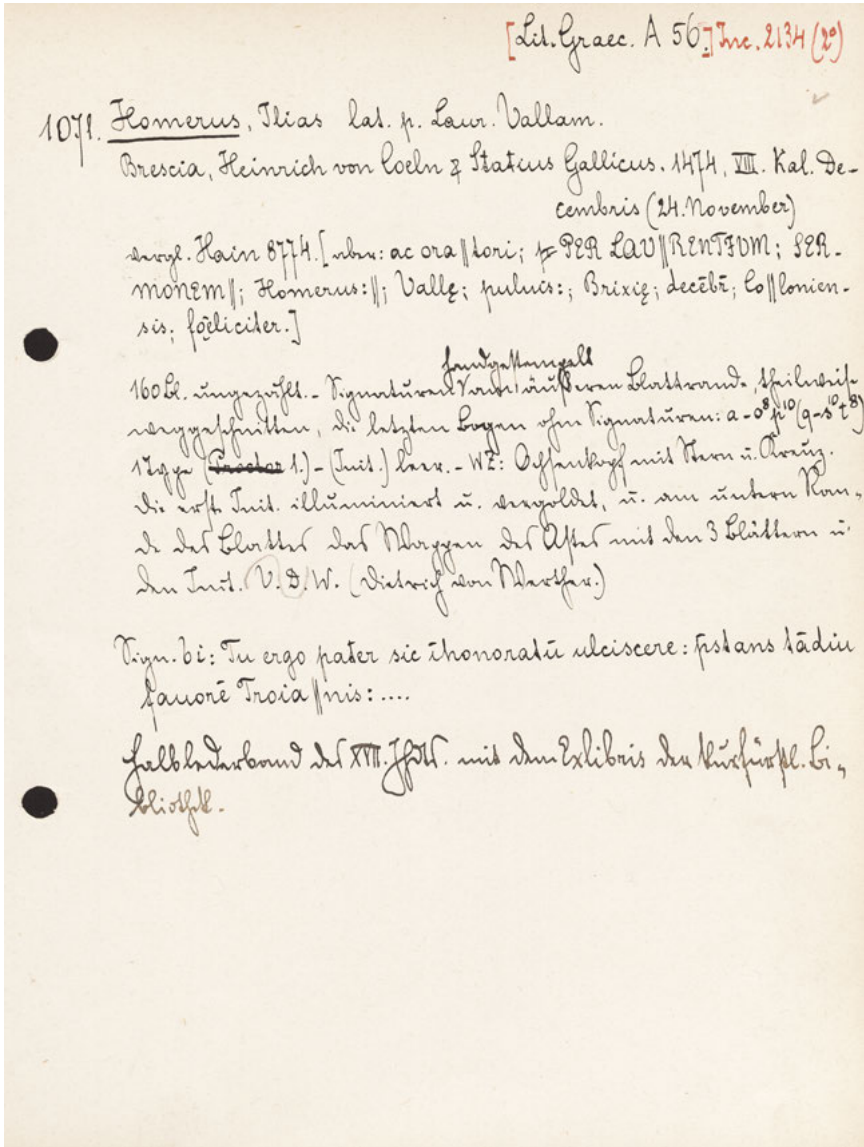 [Lit. Graec. A 56.] Inc. 2134 (2°)
1071. Homerus, Ilias lat. p. Laur. Vallam.
Brescia, Heinrich von Coeln & Statius Gallicus. 1474, VIII. Kal. De-
cembris (24. November)
vergl. Hain 8774. [aber: ac ora||tori; PER LAV||RENTIVM; SER-
MONEM||; Homerus:||; Vallę; puluis:; Brixię; decēbr̄; Co||lonien-
sis; fœliciter.]
handgestempelt
160 Bl. ungezählt. - Signaturen am äußeren Blattrande, theilweise
weggeschnitten, die letzten Bogen ohne Signaturen: a-o⁸ p¹⁰ (q-s¹⁰ t⁸)
1 Type (Proctor 1.) - (Init.) leer. - WZ: Ochsenkopf mit Stern u. Kreuz.
Die erste Init. illuminiert u. vergoldet, u. am untern Ran-
de des Blattes das Wappen des Astes mit den 3 Blättern u.
den Init. V. D. W. (Dietrich von Werther.)
Sign. bi: Tu ergo pater sic ihonoratū ulciscere: p̄stans tādiu
fauorē Troia||nis: ....
Halblederband des XVII. Jhdts. mit dem Exlibris der Kurfürstl. Bi-
bliothek.